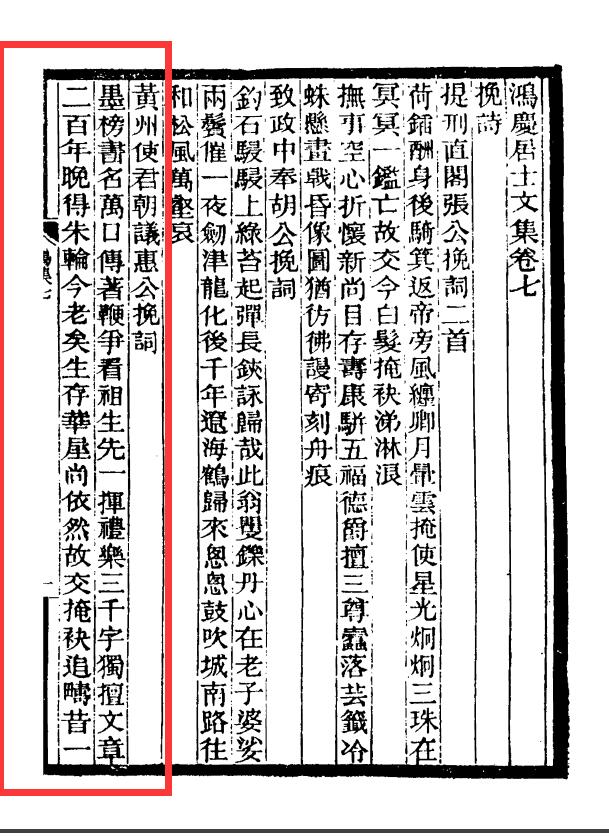 鴻慶居士文集卷七
挽詩
提刑直閣張公挽詞二首
荷鍤酬身後騎箕返帝旁風纏卿月暈雲掩使星光炯炯三珠在
冥冥一鑑亡故交今白髮掩袂涕淋浪
撫事空心折懷新尚目存壽康駢五福德爵擅三尊蠹落芸籤冷
蛛懸畫戟昏像圖猶彷彿謾寄刻舟痕
致政中奉胡公挽詞
釣石駸駸上綠苔起彈長鋏詠歸哉此翁矍鑠丹心在老子婆娑
雨鬢催一夜劒津龍化後千年遼海鶴歸來悤悤鼓吹城南路往
和松風萬壑哀
黃州使君朝議惠公挽詞
墨榜書名萬口傳著鞭爭看祖生先一揮禮樂三千字獨擅文章
二百年晚得朱輪今老矣生存華屋尚依然故交掩袂追疇昔一
鴻集七
一